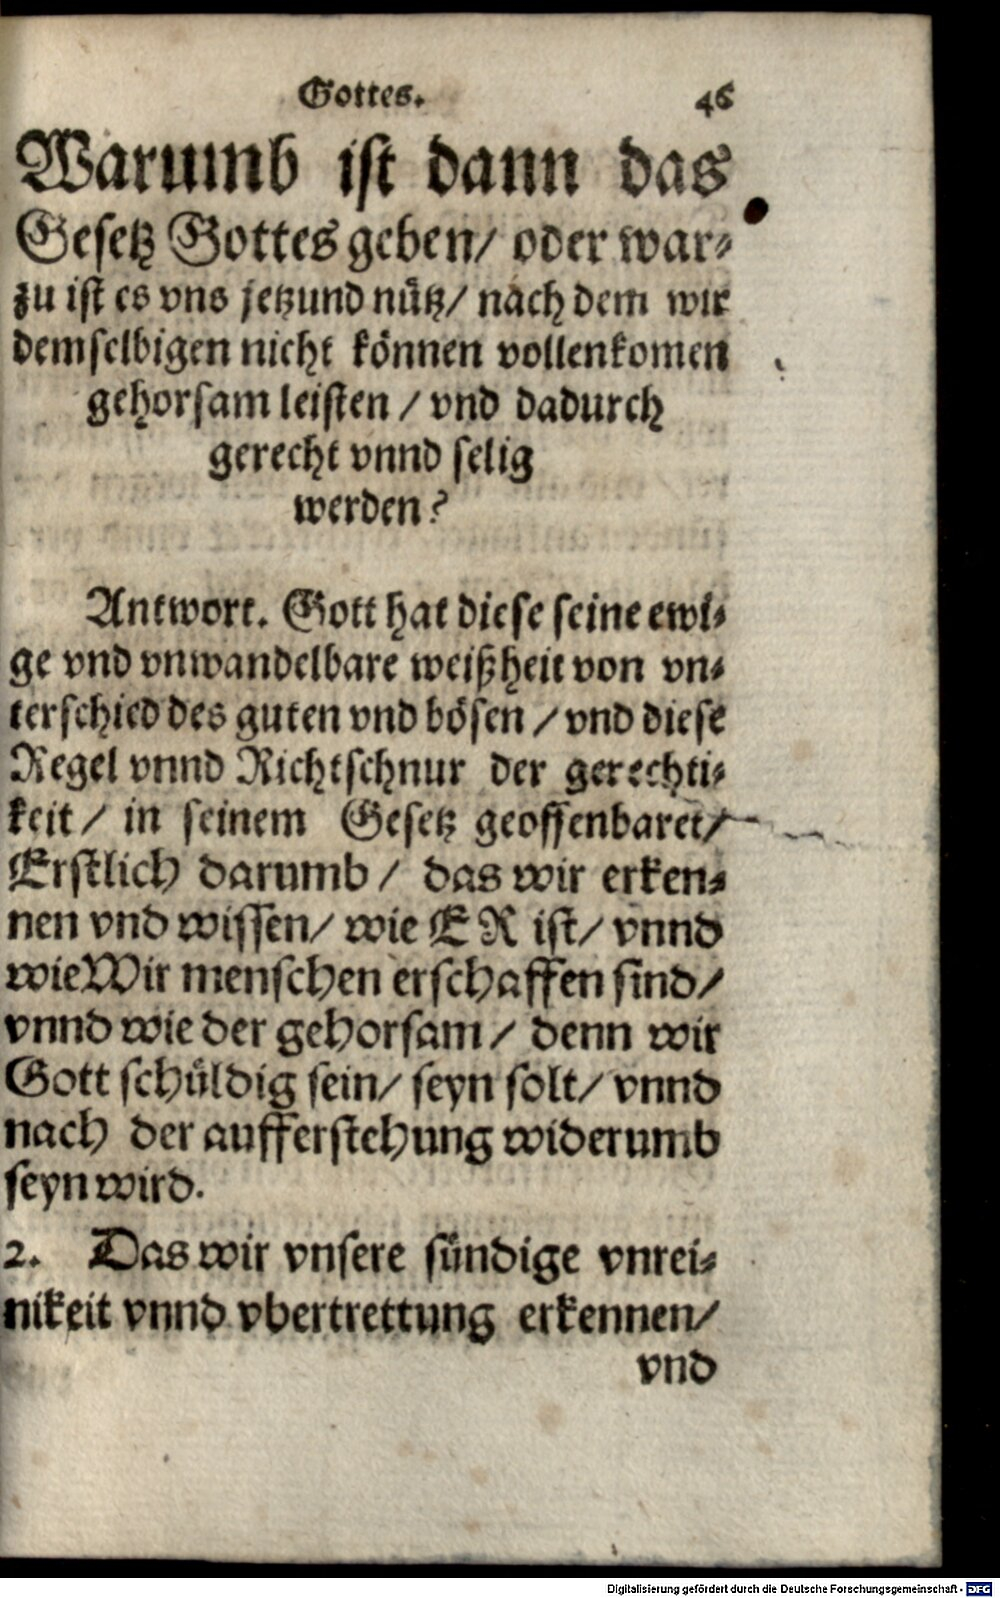 Gottes. 46
Warumb ist dann das
Gesetz Gottes geben/ oder war⸗
zu ist es vns jetzund nuͤtz/ nach dem wir
demselbigen nicht koͤnnen vollenkomen
gehorsam leisten / vnd dadurch
gerecht vnnd selig
werden?
Antwort. Gott hat diese seine ewi⸗
ge vnd vnwandelbare weißheit von vn⸗
terschied des guten vnd boͤsen / vnd diese
Regel vnnd Richtschnur der gerechti⸗
keit / in seinem Gesetz geoffenbaret/
Erstlich darumb / das wir erken⸗
nen vnd wissen/ wie ER ist/ vnnd
wie Wir menschen erschaffen sind/
vnnd wie der gehorsam / denn wir
Gott schuͤldig sein/ seyn solt/ vnnd
nach der aufferstehung widerumb
seyn wird.
2. Das wir vnsere suͤndige vnrei⸗
nikeit vnnd vbertrettung erkennen/
vnd
Digitalisierung gefördert durch die Deutsche Forschungsgemeinschaft - DFG